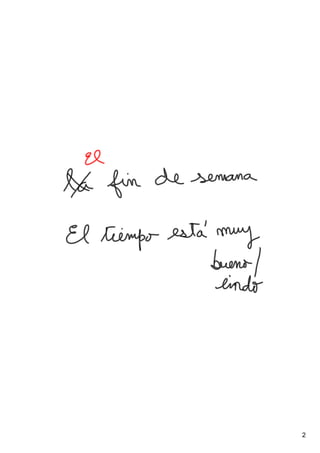 El
La fin de semana
El tiempo está muy
bueno/
lindo
2